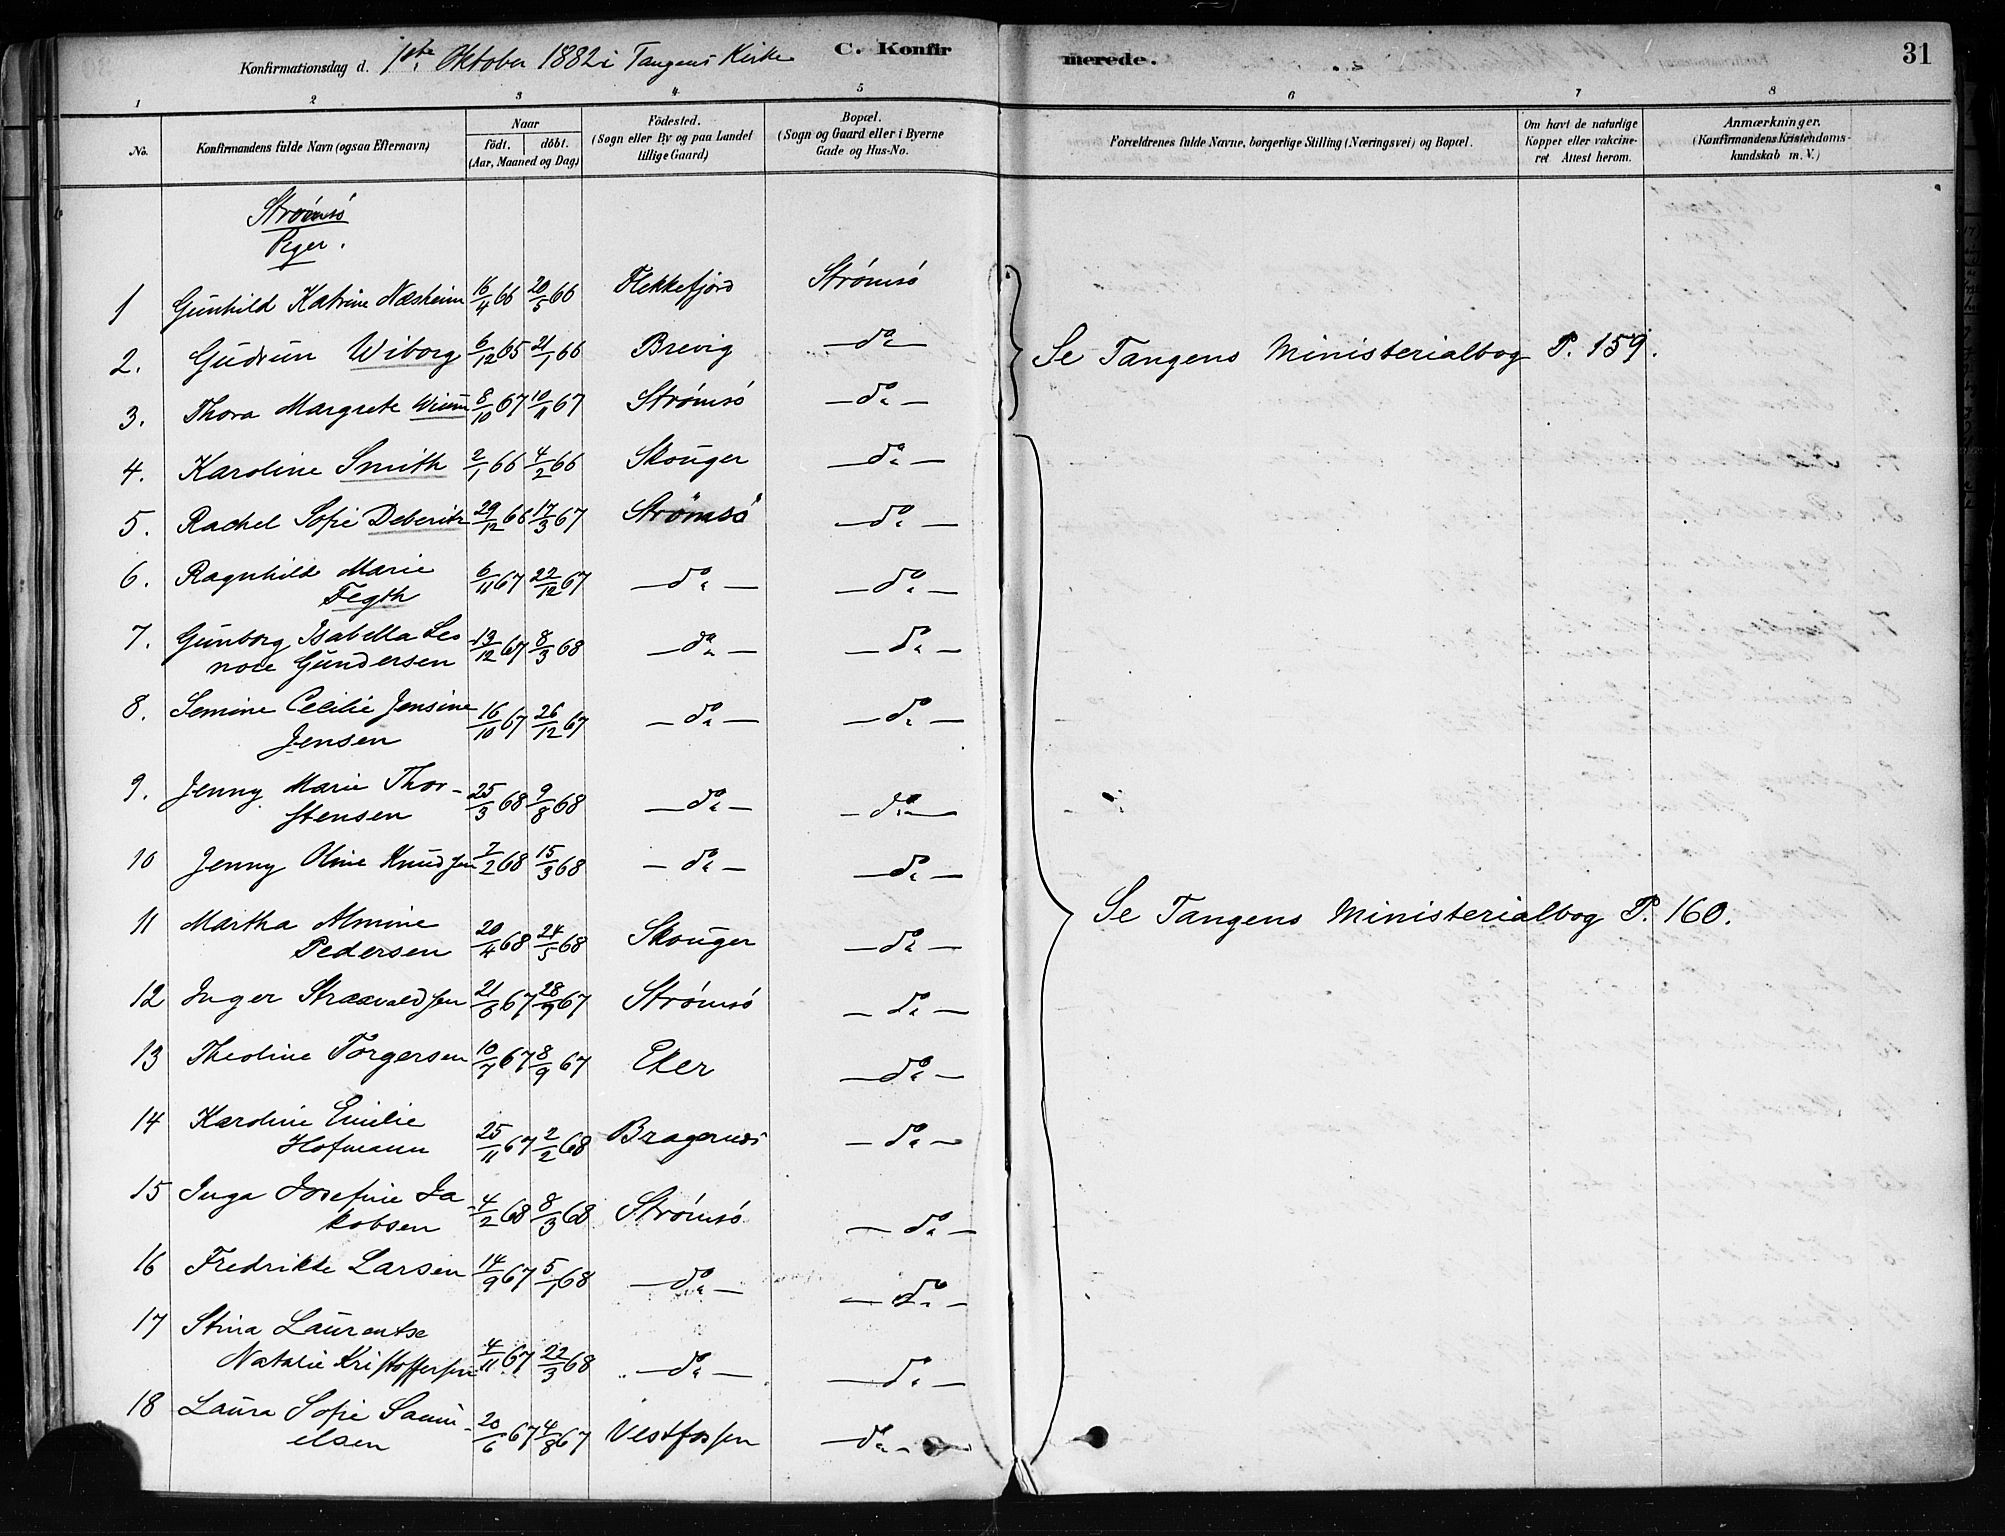 Konfirmationsdag d. 1ste Oktober 1882 i Tangens Kirke C. Konfirmerede. 31
1 2 3 4 5 6 7 8
No. Konfirmandens fulde Navn (ogsaa Efternavn) Naar födt. döbt. (Aar, Maaned og Dag) Födested. (Sogn eller By og paa Landet tillige Gaard) Bopæl. (Sogn og Gaard eller i Byerne Gade og Hus-No. Forældrenes fulde Navne, borgerlige Stilling (Næringsvei) og Bopæl. Om havt de naturlige Kopper eller vakcineret Attest herom. Anmærkninger. (Konfirmandens Kristendomskundskab m. V.)
Strømsö
Piger.
1 Gunhild Katrine Næsheim 16/4 66 20/5 66 Flekkefjord Strømsö
2. Gudrun Wiborg 6/12 65 21/1 66 Brevig — do —
Se Tangens Ministerialbog P. 159.
3. Thora Margrete Wium 8/10 67 10/11 67 Strömsö — do —
4. Karoline Smith 2/1 66 4/2 66 Skouger — do —
5. Rachel Sofie Deberitz 29/12 66 17/3 67 Strömsö — do —
6. Ragnhild Marie
Fegth 6/11 67 22/12 67 — do — — do —
7. Gunborg Isabella Leo
nore Gundersen 13/12 67 8/3 68 — do — — do —
8. Semine Cecilie Jensine
Jensen 16/10 67 26/12 67 — do — — do —
9. Jenny Marie Thor-
stensen 25/3 68 9/8 68 — do — — do —
10 Jenny Oline Knudsen 7/2 68 15/3 68 — do — — do —
11 Martha Almine
Pedersen 20/4 68 24/5 68 Skouger — do —
Se Tangens Ministerialbog P. 160.
12 Inger Straavaldsen 21/8 67 28/9 67 Strømsö — do —
13 Theoline Torgersen 10/7 67 8/9 67 Eker — do —
14 Karoline Emilie
Hofmann 25/11 67 2/2 68 Bragernæs — do —
15 Inga Josefine Ja
kobsen 4/2 68 8/3 68 Strømsö — do —
16 Fredrikke Larsen 14/9 67 5/1 68 — do — — do —
17 Stina Laurentse
Natalie Kristoffersen 4/11 67 22/3 68 — do — — do —
18 Laura Sofie Samu-
elsen 20/6 67 4/8 67 Vestfossen — do —